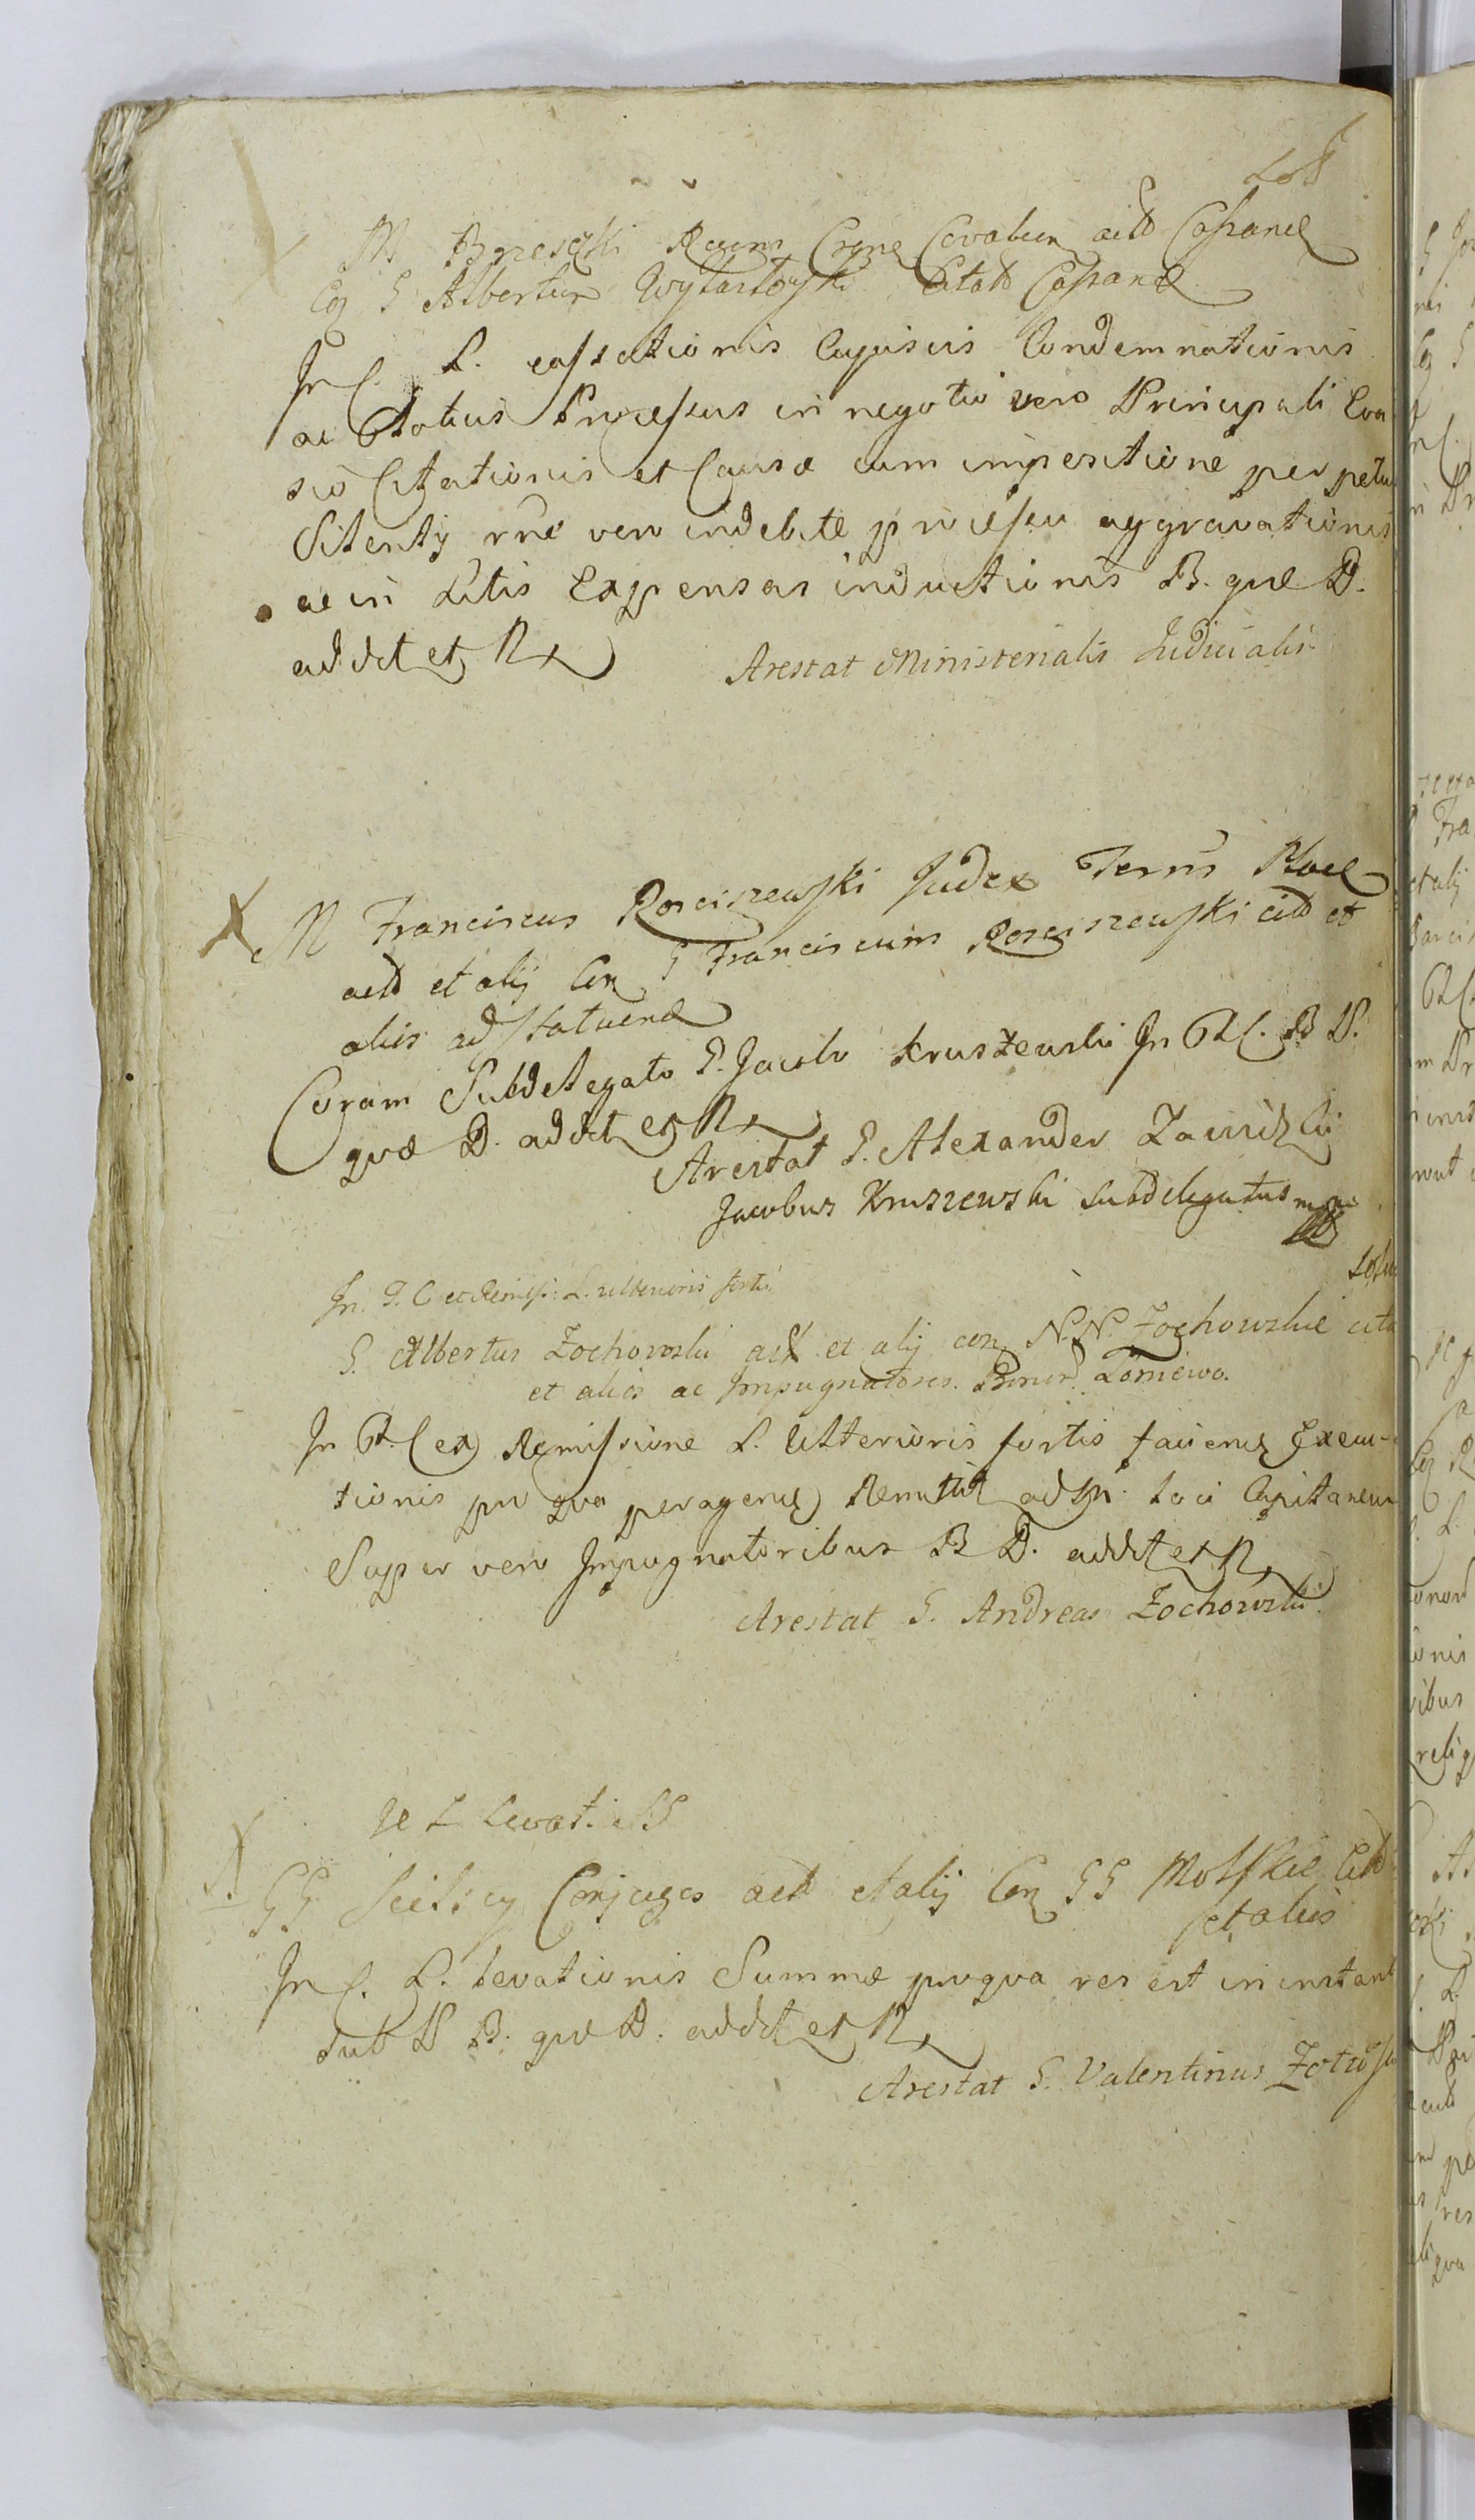 M Brzeski Regens Crgne Covalien actd Cassand
Cq G Albertum Wyłastowski Citatd Cassand
In C. L. cassationis cujusvis Condemnationis
ac totius Processus in negotio vero Principali Eva
sio Citationis et Causæ cum impositione perpetu
Silentij rne vero indebite processu aggravationis
ac in Litis Expensas inductionis B. que D.
addit et R
Arestat Ministerialis Judicialis
M Franciscus Rosciszewski Judex Terris Ploce
actd et alij Con G Franciscum Rosciszewski citd et
aliis ad statuend
Coram Subdelegato G. Jacobo Kruszewski In P C. B D.
quæ D. addit et R
Arestat G. Alexander Zawidzki
Jacobus Kruszewski Subdelegatus mpr
In P. C et Remiss: L. ulterioris fortis
G. Albertus Zochowski actd et alij con N.N. Zochowskie cita
et alios ac Impugnatores. Bonor. Łoniewo.
In P. C ex Remissione L. Ulterioris fortis faciend Execu-
tionis pro qua peragend Remittit ad M. loci Capitaneum
Super vero Impugnatoribus B D. addit et R
Arestat G. Andreas Zochowski
L Levat:
GG Conjuges actd et alij Con GG Molskie Citd
et aliis
In C. L. levationis Summæ pro qua res est in instant
sub D B. que D. addit et R
Arestat G. Valentinus